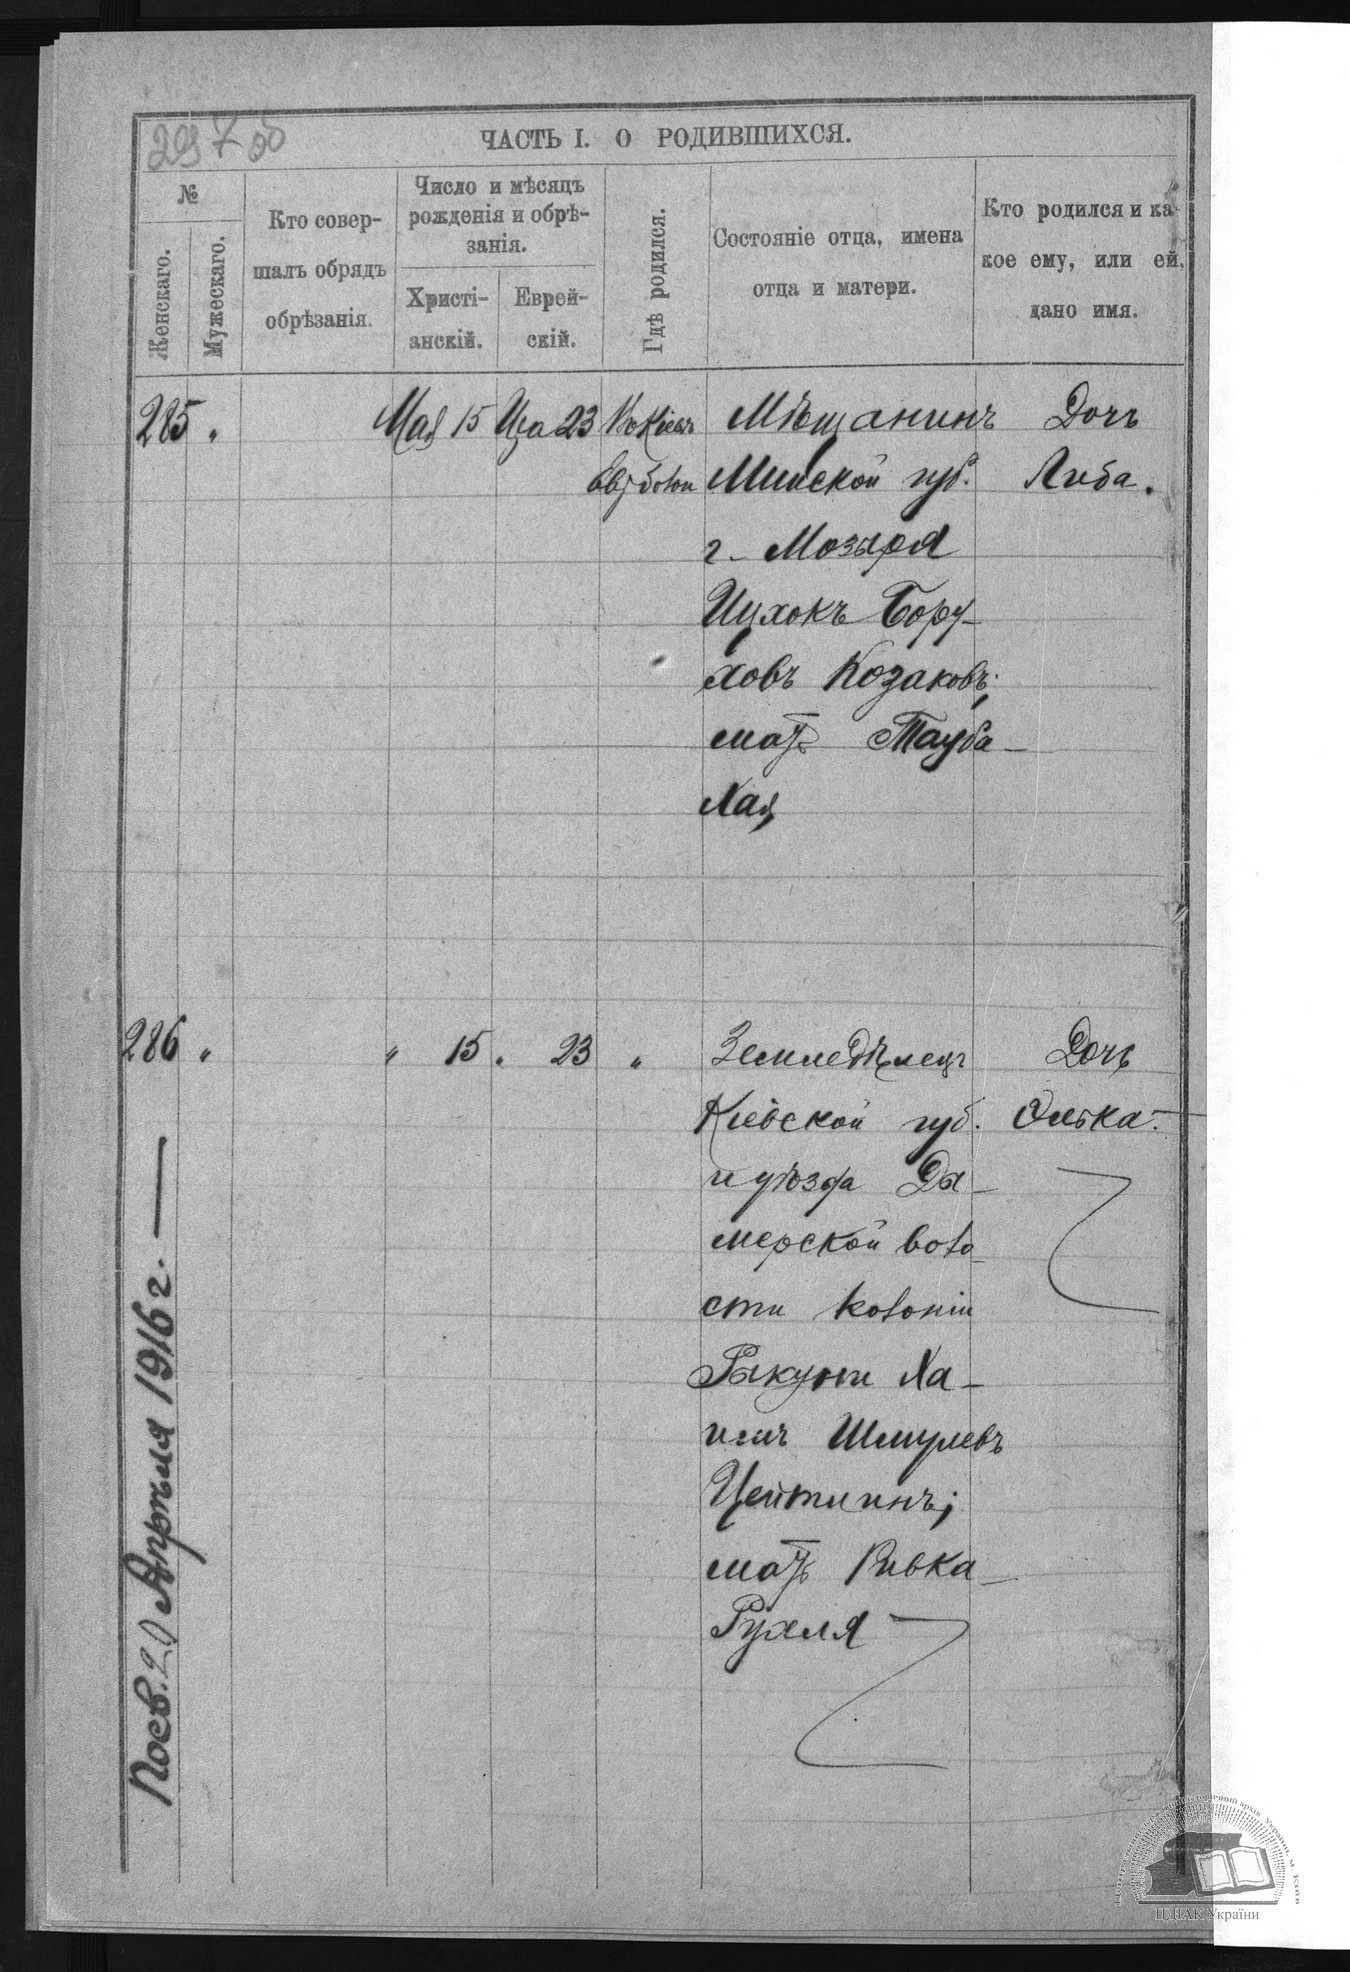 297 об
ЧАСТЬ I. О РОДИВШИХСЯ.
№
Женскаго.
Мужескаго.
Кто совер-
шалъ обрядъ
обрѣзанія.
Число и мѣсяцъ
рожденія и обрѣ-
занія.
Христі-
анскій.
Еврей-
скій.
Гдѣ родился.
Состояніе отца, имена
отца и матери.
Кто родился и ка-
кое ему, или ей,
дано имя.
285 „ Мая 15 Ира 23 Въ Кіевѣ Мѣщанинъ Дочь
Минской губ. Либа.
г. Мозыря
Ицхокъ Бору-
ховъ Козаковъ;
мать Тауба-
Хая
286 „ „ 15 „ 23 „ Земледѣлецъ Дочь
Кіевской губ. Элька.
и уѣзда Ды-
мерской воло-
сти колоніи
Рыкуни Ха-
имъ Шмулевъ
Цейтлинъ;
мать Ривка-
Рухля
Апрѣля 1916 г.
ЦДІАК України